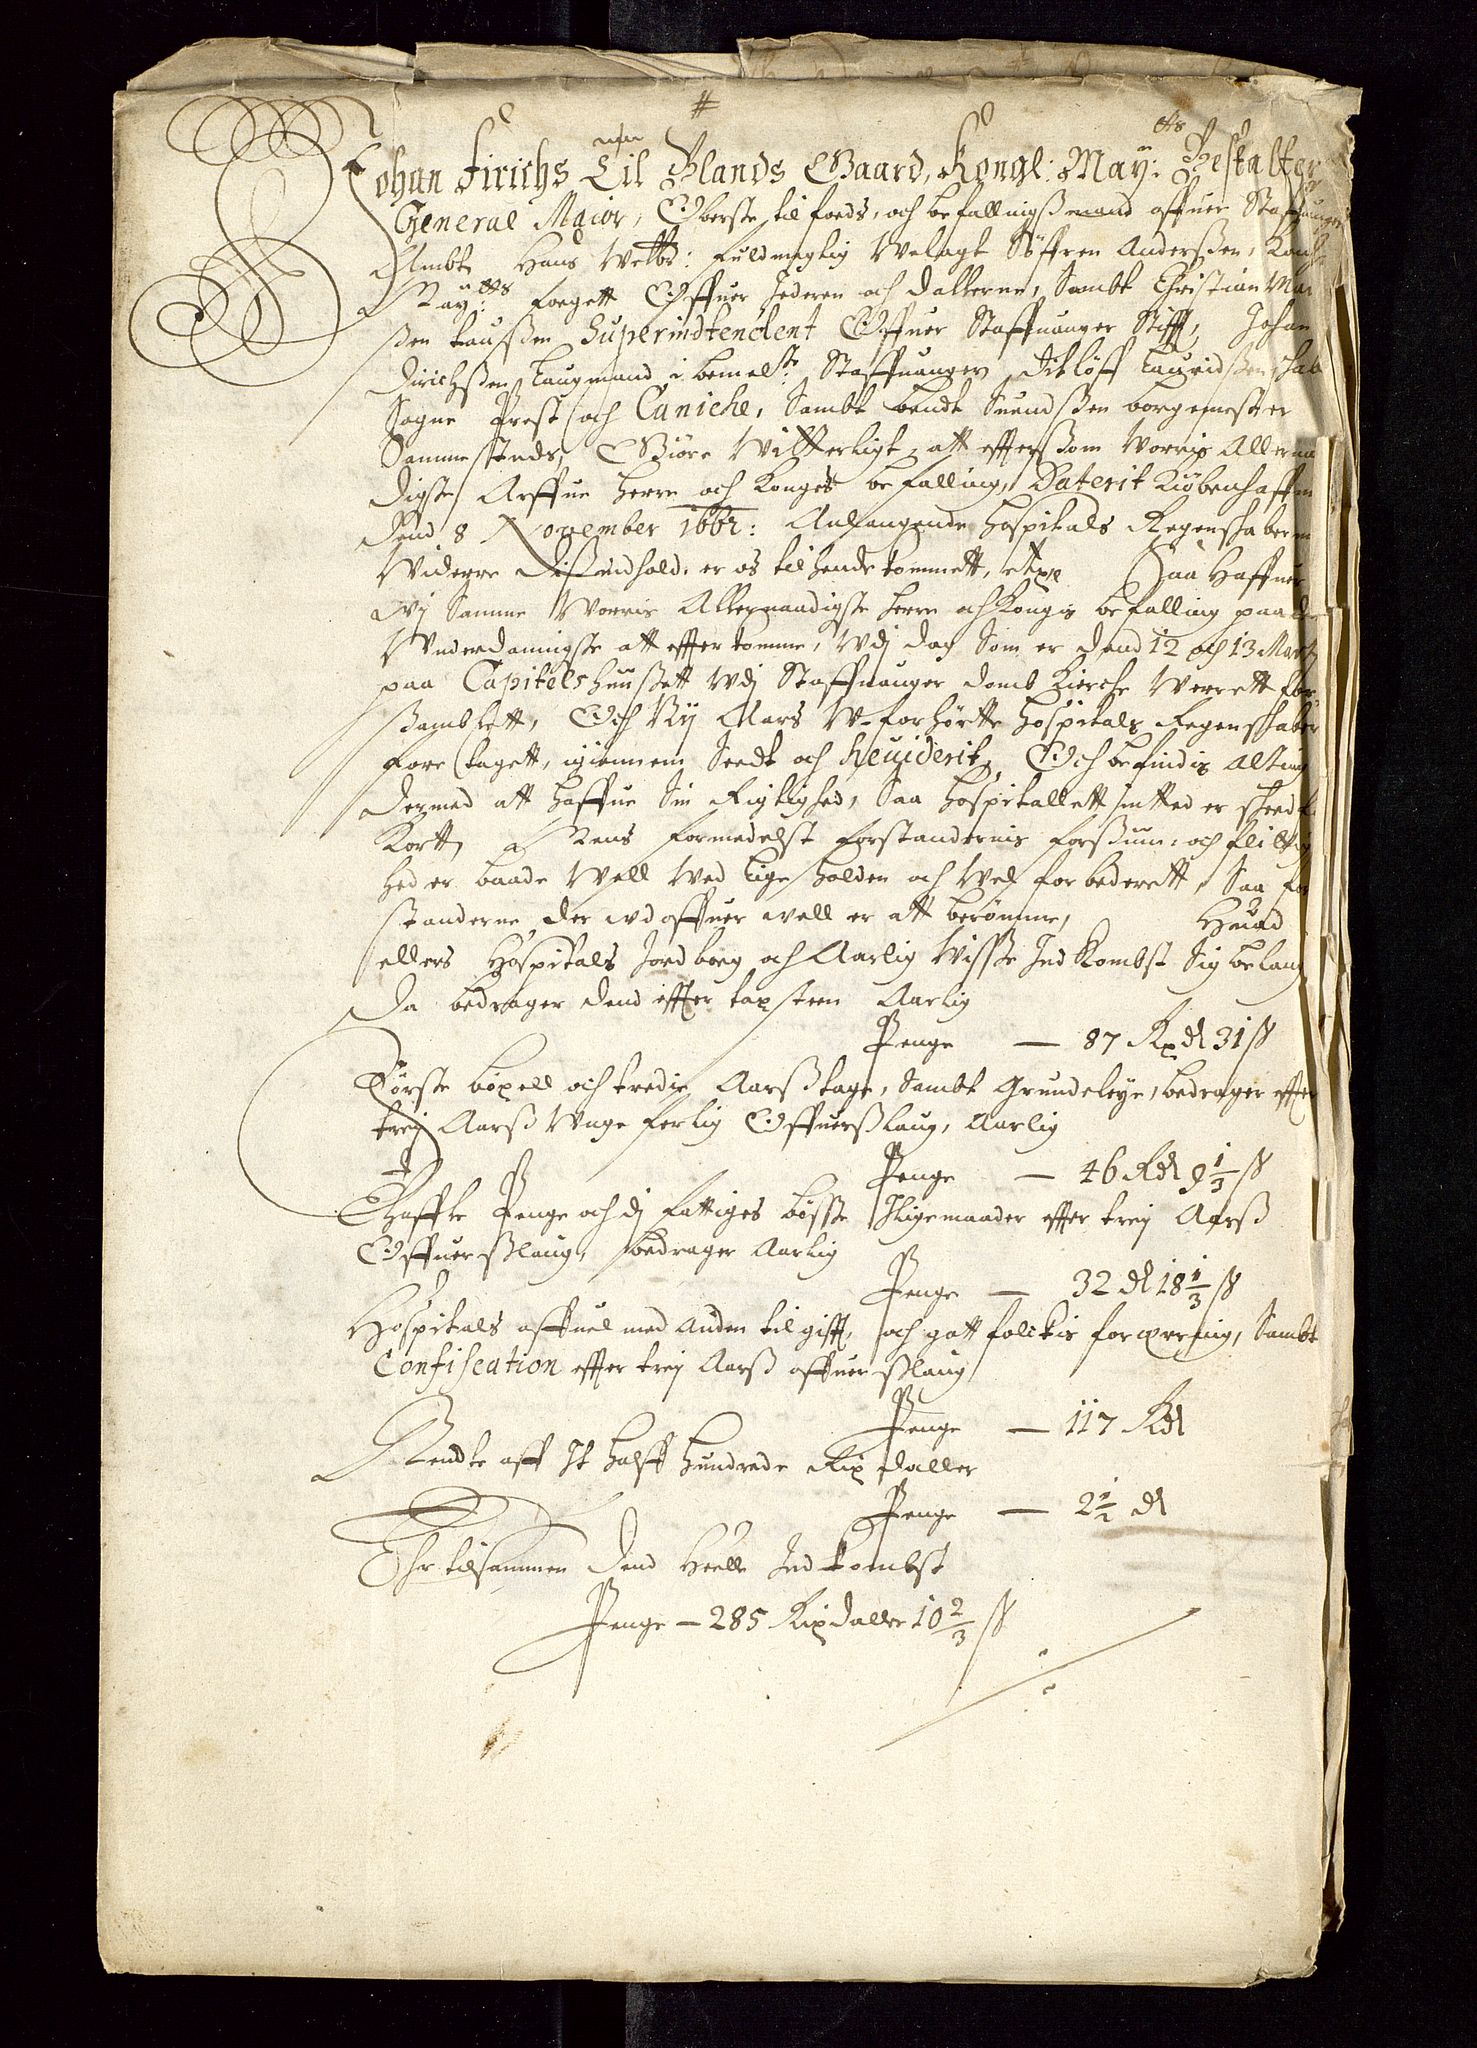 Johan Firichs[en] Til Blands Gaard, Kongl: May:tts Bestalter
General Maior, Öberste til foeds, och befallingßmand offuer Staffuanger
Ambt, Hans Welb: fuldmegtig Welagt Söffren Anderßen, Kongl
May:tts foegett Offuer Jederen och Dallerne, Sambt Christian Mad
ßen Taußen Superindtendent Offuer Staffuanger Stifft, Johan
Dirichßen Laugmand i bemel:te Staffuanger, Ditløff Lauridßen
Sogne Prest och Caniche, Sambt bendt Suendßen borgemester
Sammestends, Giöre Witterligt, att effterßom Worris Allernaa
digste Arffue herre och Konges befalling, Daterit Kiöbenhaffn
Dend 8 November 1662: Anlangende Hospitals Regenschaberne
Widerre Dißindhold, er os tilhende kommett, Saa Haffuer
wj Samme Worris Allernaadigste herre och Kongis befalling paa det
Wnderdannigste att effterkomme, Wdj dag Som er Dend 12 och 13 Marty
paa Capitels huußett wdj Staffuanger domb Kierche Werrett for
ßamblett, Och Nij Aars W-forhörtte Hospitals Regenschaber
fore taget, igiennem Seedt och Reuiderit, Och befindis Alting
Dermed att haffue Sin Rigtighed, Saa Hospitallett intted er skeed
Kortt, Mens formedelst forstandernis forßuun: och flittig
hed er baade Well Wed lige holden och Wel forbederett, Saa for
standerne der wdoffuer well er att berömme, Huad
ellers Hospitals Jordbog och Aarlig Wisße Indkombst Sig belang
Da bedrager Dend effter taxsten Aarlig
Penge — 87 Rxdl 31 ß
Förste böxell och tredie Aarßtage, Sambt Grundeleye, bedrager effter
trej Aarß Wuge ferlig Offuerßlaug, Aarlig
Penge — 46 Rdl 9 1/3 ß
Thaffle Penge och dj fattiges bößße Iligemaader effter trej Aarß
Offuerßlaug, bedrager Aarlig
Penge — 32 dl 18 1/3 ß
Hospitals affuel med anden tilgifft, och gott folckis forærring, Sambt
Confiscation effter trej Aarß offuerßlaug
Penge — 117 Rdl
Rendte aff It halff hundrede Rix daller
Penge — 2 1/2 dl
Ehr tilsammen Dend Heelle Indkombst
Penge — 285 Rixdaller 10 2/3 ß